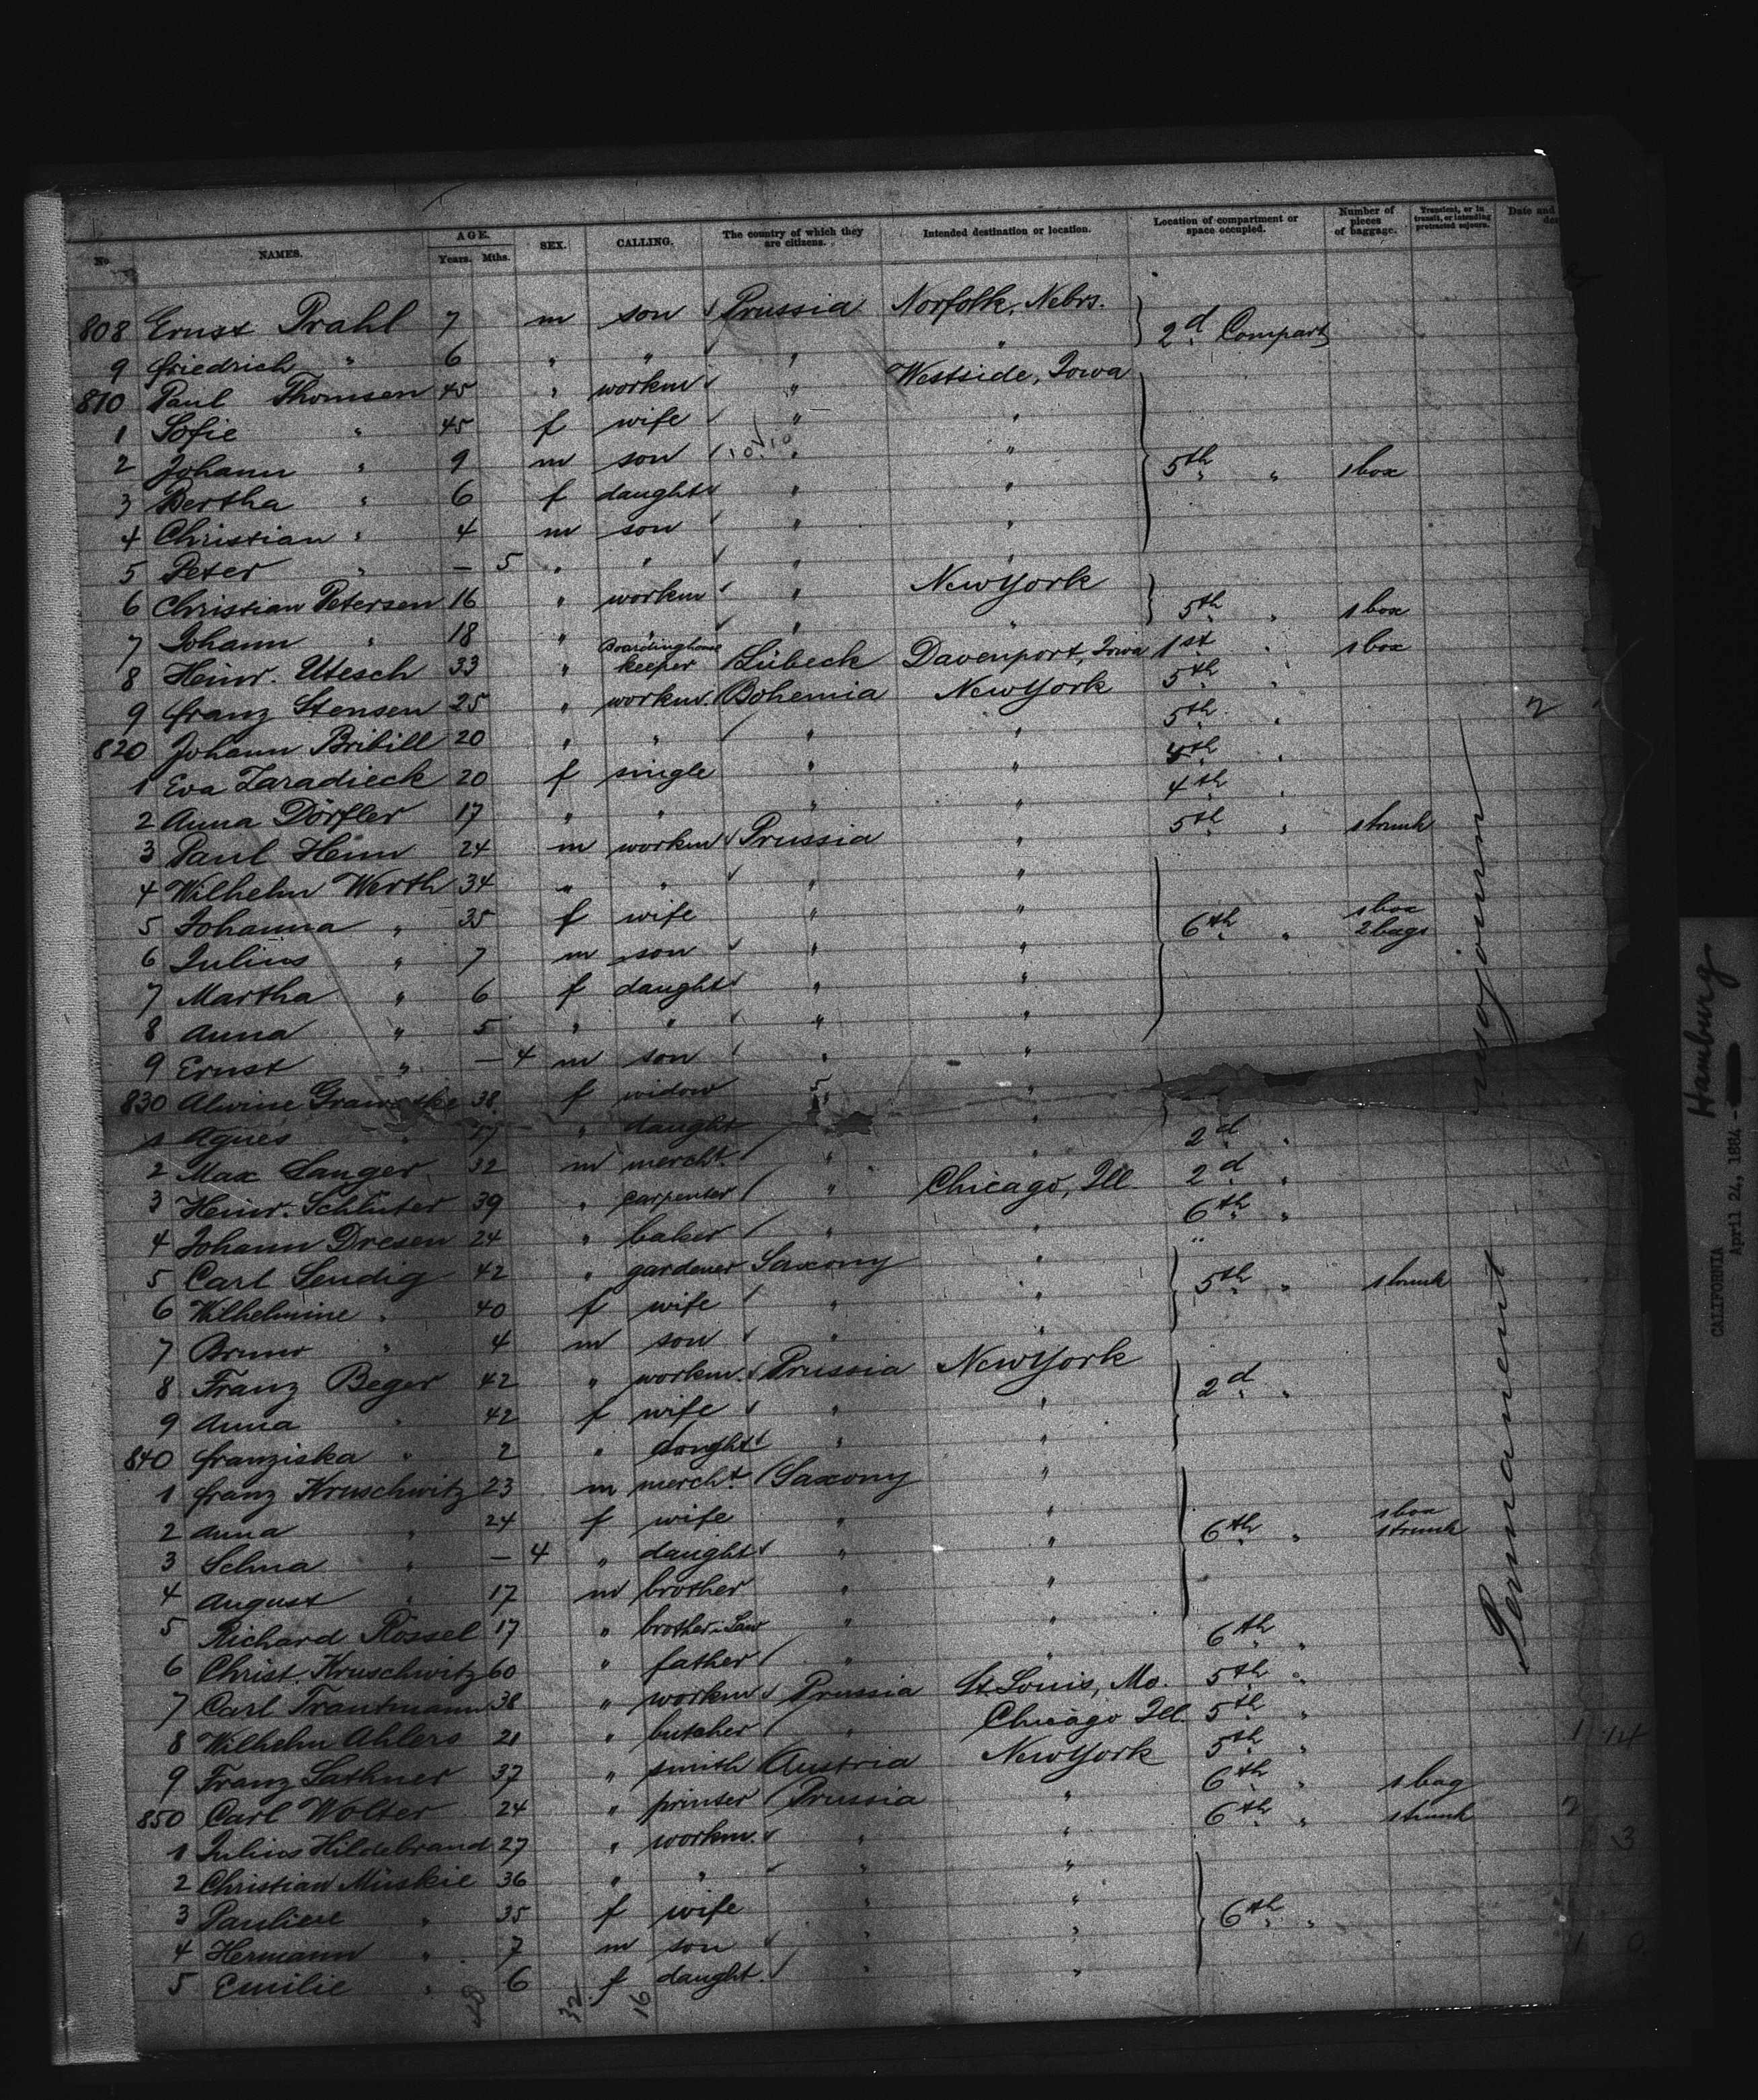 No NAMES. AGE. Years. Mths. SEX. CALLING. The country of which they are citizens. Intended destination or location. Location of compartment or space occupied. Number of pieces of baggage. Transient, or in transit, or intending protracted sojourn. Date and
808 Ernst Prahl 7 m son Prussia Norfolk, Nebrs. 2d Compart
9 Friedrich " 6 " " " "
810 Paul Thomsen 45 " workm " Westside, Iowa
1 Sofie " 45 f wife " "
2 Johann " 9 m son " " 5th " 1 box
3 Bertha " 6 f daught " "
4 Christian " 4 m son " "
5 Peter " — 5 " " " "
6 Christian Petersen 16 " workm " New York 5th " 1 box
7 Johann " 18 " " " "
8 Heinr. Utesch 33 " Boardinghouse keeper Lübeck Davenport, Iowa 1st " 1 box
9 Franz Stensen 25 " workm. Bohemia New York 5th "
820 Johann Bribill 20 " " " " 5th "
1 Eva Zaradieck 20 f single " " 4th "
2 Anna Dörfler 17 " " " " 4th "
3 Paul Heim 24 m workm Prussia " 5th " 1 trunk
4 Wilhelm Werth 34 " " " "
5 Johanna " 35 f wife " " 6th " 1 box 2 bags
6 Julius " 7 m son " "
7 Martha " 6 f daught " "
8 Anna " 5 " " " "
9 Ernst " — 4 m son " "
830 Alwine 38 f widow " "
1 Agnes " 17 " daught "
2 Max Langer 32 m mercht. " " 2d "
3 Heinr. Schlüter 39 " carpenter " Chicago, Ill 2d "
4 Johann Dresen 24 " baker " " 6th "
5 Carl Sendig 42 " gardener Saxony " 5th " 1 trunk
6 Wilhelmine " 40 f wife " "
7 Bruno " 4 m son " "
8 Franz Beger 42 " workm. Prussia New York 2d "
9 Anna " 42 f wife " "
840 Franziska " 2 " daught " "
1 Franz Kruschwitz 23 m mercht. Saxony "
2 Anna " 24 f wife " " 6th " 1 box 1 trunk
3 Selma " — 4 " daught " "
4 August " 17 m brother " "
5 Richard Rössel 17 " brother i. Law " "
6 Christ. Kruschwitz 60 " father " " 6th "
7 Carl Trautmann 38 " workm Prussia St. Louis, Mo. 5th "
8 Wilhelm Ahlers 21 " butcher " Chicago Ill. 5th "
9 Franz Lathner 37 " smith Austria New York 5th "
850 Carl Wolter 24 " printer Prussia " 6th " 1 bag
1 Julius Hildebrand 27 " workm. " " 6th " 1 trunk
2 Christian Müskie 36 " " " "
3 Pauline " 35 f wife " " 6th "
4 Hermann " 7 m son " "
5 Emilie " 6 f daught. " "
32 16
Permanent sojourn
Hamburg
CALIFORNIA
April 24, 1884